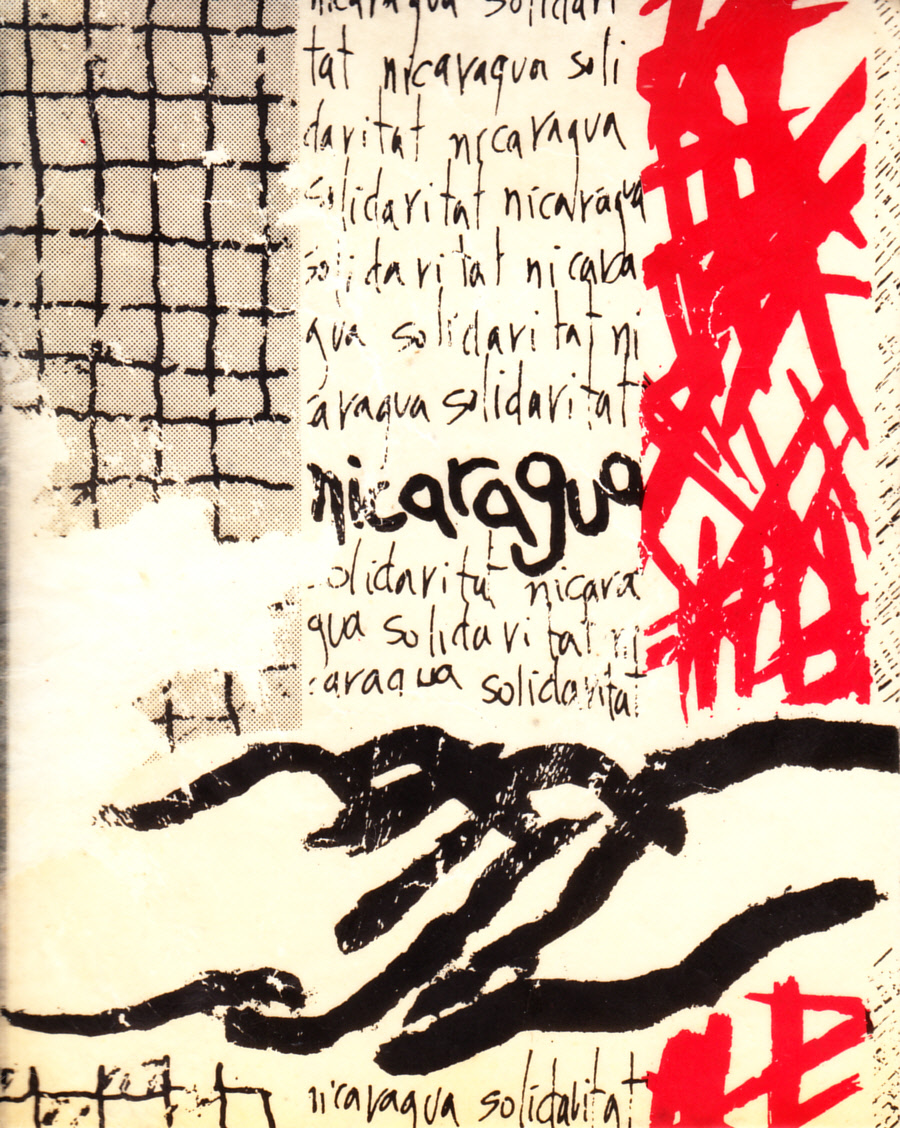 nicaragua solidari
tat nicaragua soli
daritat nicaragua
solidaritat nicaragua
solidaritat nicara
gua solidaritat ni
caragua solidaritat
nicaragua
solidaritat nicara
gua solidaritat ni
caragua solidaritat
nicaragua solidaritat